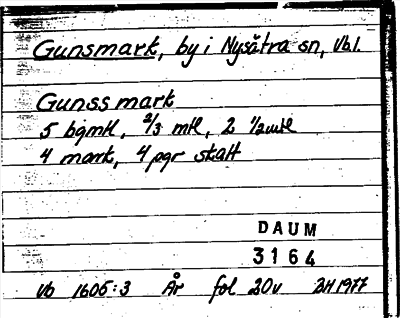 Gunsmark, by i Nysätra sn, Vb l.
Gunssmark
5 bgmtl, 2/3 mtl, 2 1/2 mtl
4 mark, 4 pgr skatt
DAUM
3164
Vb 1606:3 År fol 20v BH 1977